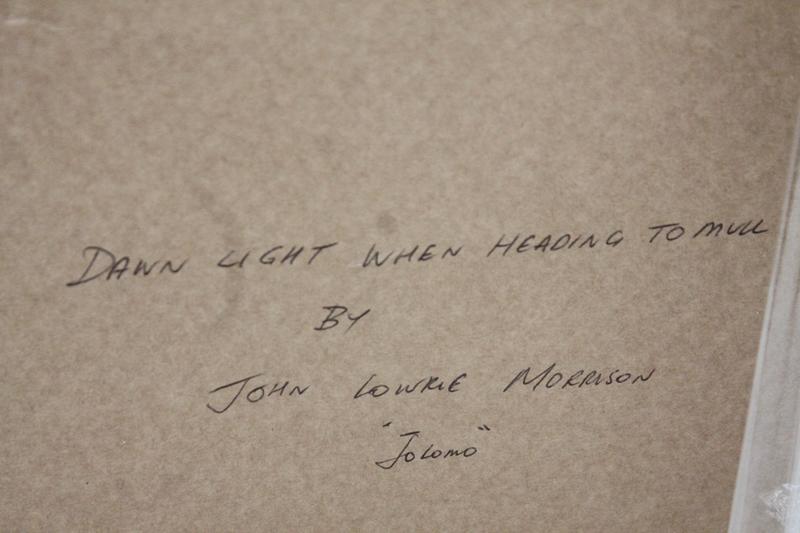 DAWN LIGHT WHEN HEADING TO MULL
BY
JOHN LOWRIE MORRISON
"JoLomo"